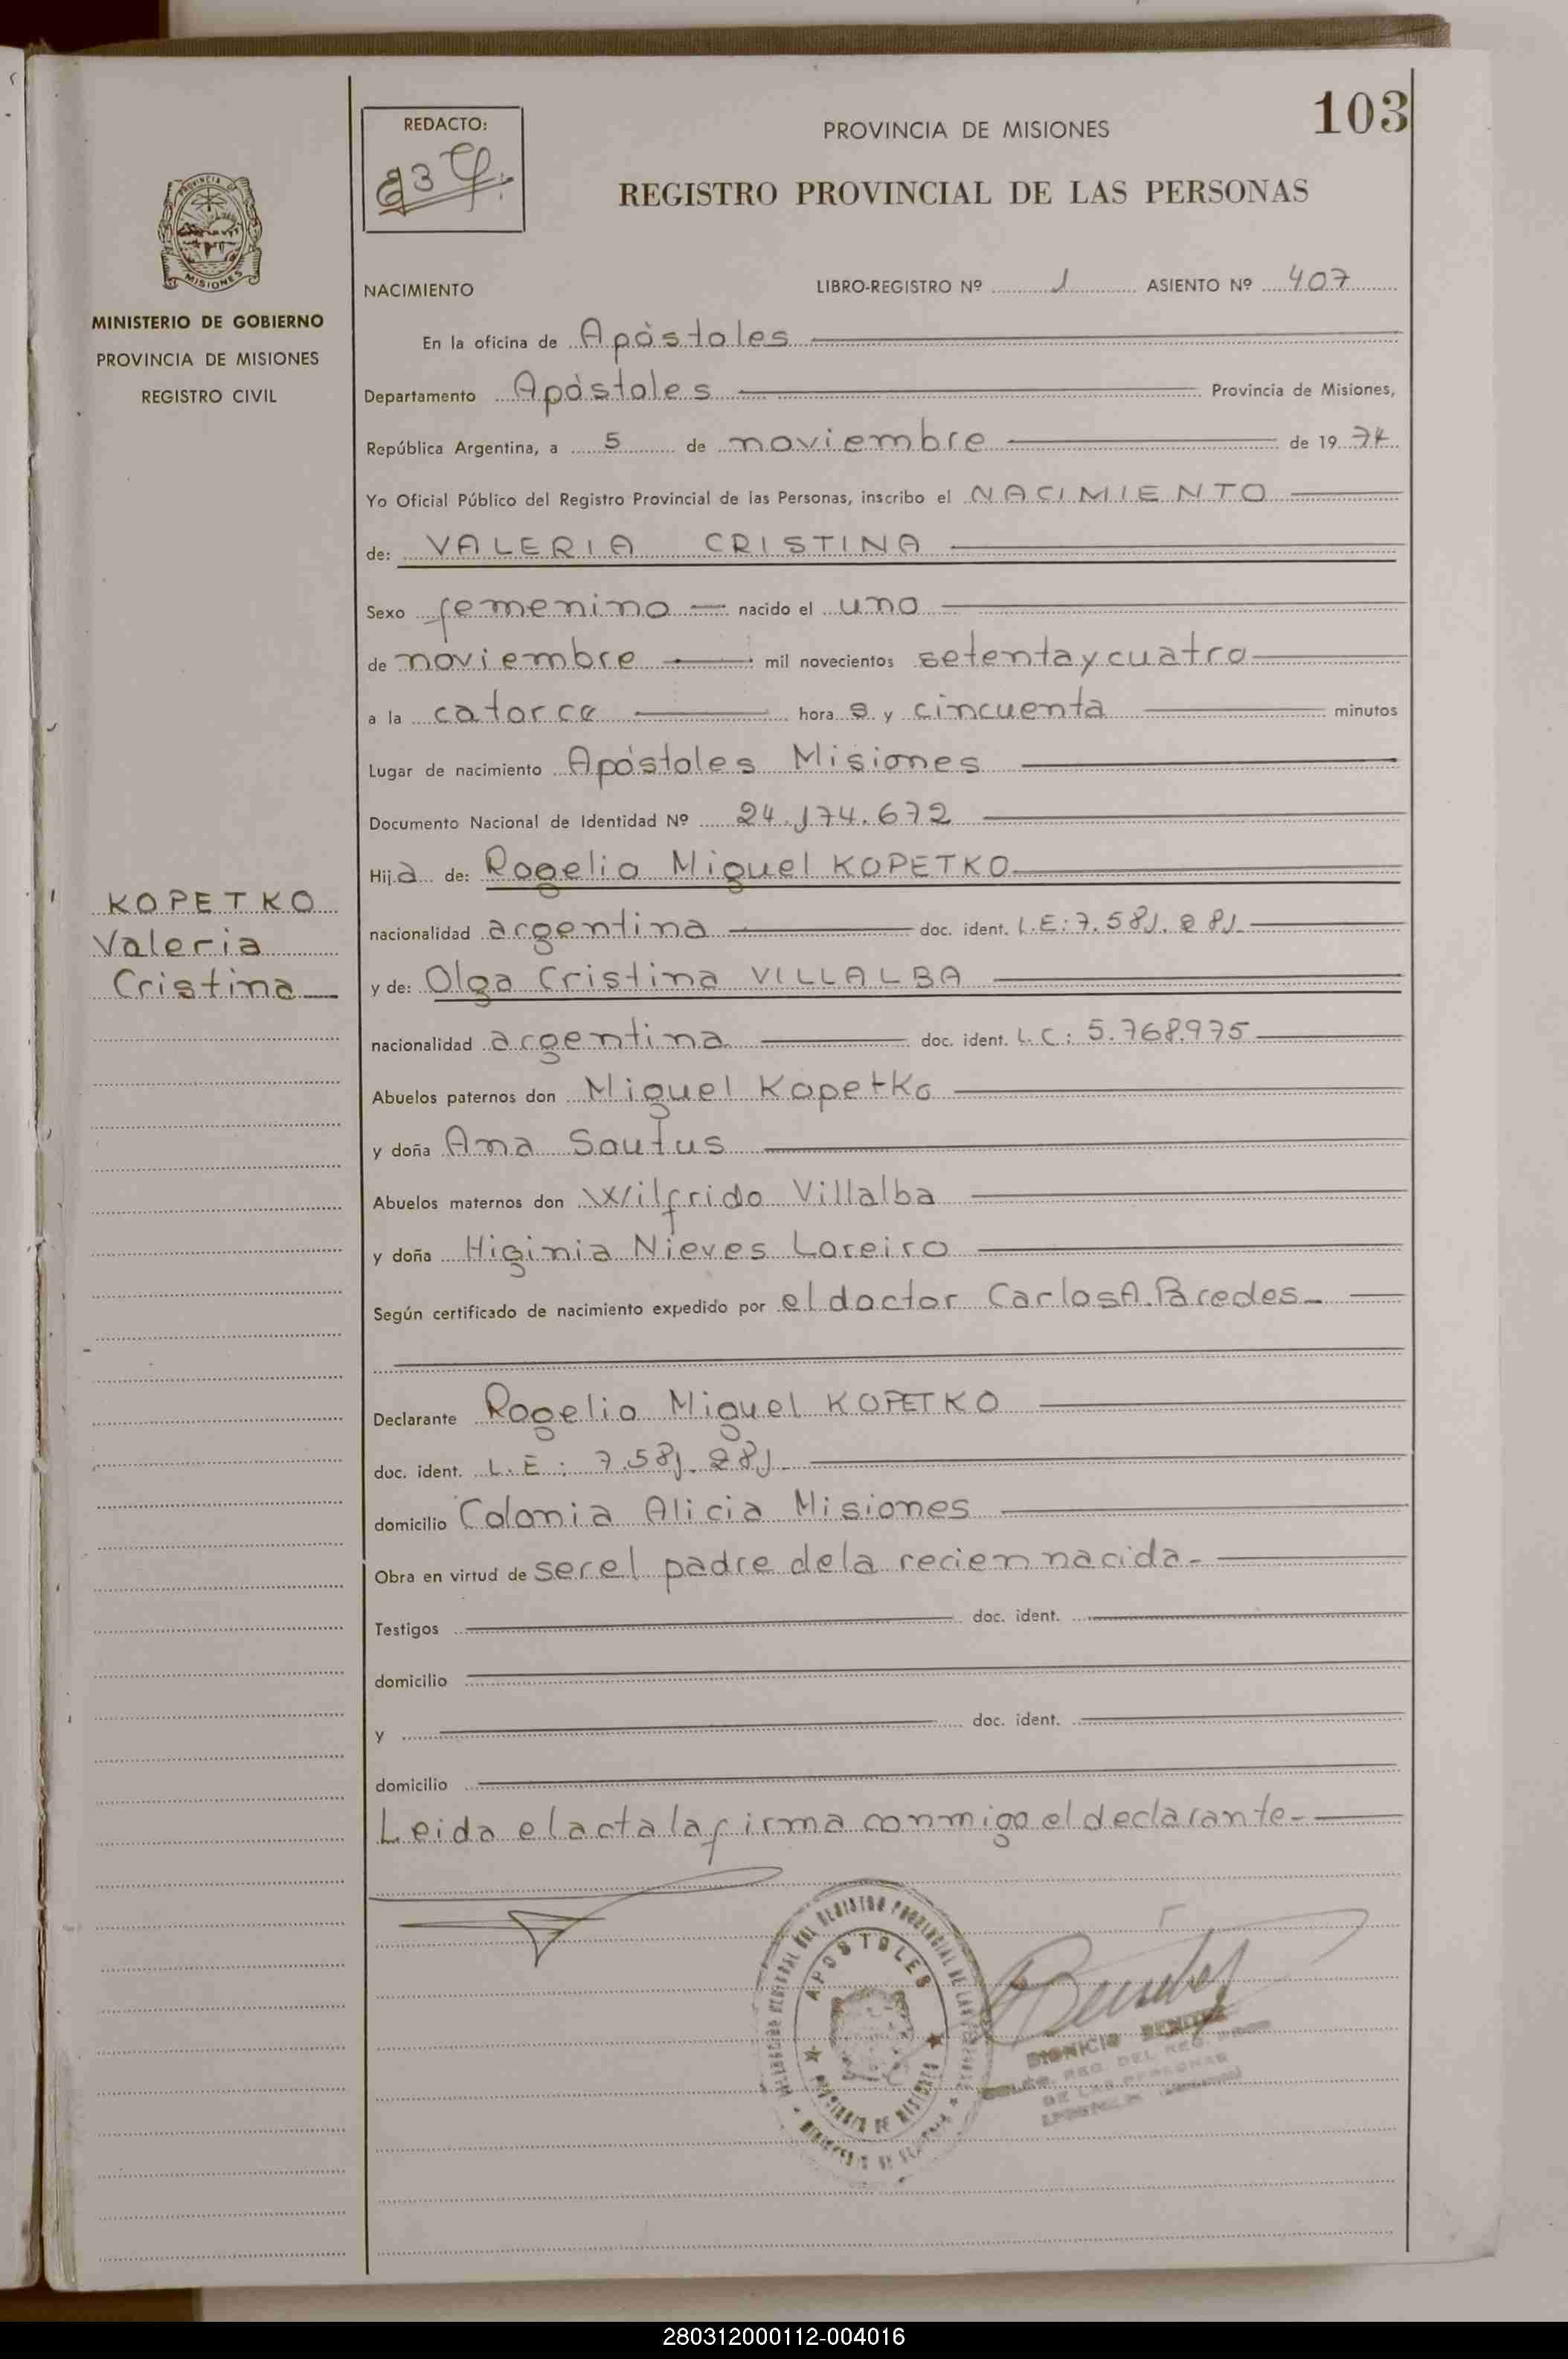 103
REDACTO:
PROVINCIA DE MISIONES
REGISTRO PROVINCIAL DE LAS PERSONAS
MISIONES
MINISTERIO DE GOBIERNO
PROVINCIA DE MISIONES
REGISTRO CIVIL
NACIMIENTO LIBRO-REGISTRO Nº 1 ASIENTO Nº 407
En la oficina de Apóstoles
Departamento Apóstoles Provincia de Misiones,
República Argentina, a 5 de noviembre de 1974
Yo Oficial Público del Registro Provincial de las Personas, inscribo el NACIMIENTO
de: VALERIA CRISTINA
Sexo femenino nacido el uno
de noviembre mil novecientos setenta y cuatro
a la catorce hora s y cincuenta minutos
Lugar de nacimiento Apóstoles Misiones
Documento Nacional de Identidad Nº 24.174.672
Hija de: Rogelio Miguel KOPETKO
KOPETKO
Valeria
Cristina
nacionalidad argentina doc. ident. L.E: 7.581.281
y de: Olga Cristina VILLALBA
nacionalidad argentina doc. ident. L.C: 5.768.975
Abuelos paternos don Miguel Kopetko
y doña Ana Saufus
Abuelos maternos don Wilfrido Villalba
y doña Higinia Nieves Loreiro
Según certificado de nacimiento expedido por el doctor Carlos A. Paredes
Declarante Rogelio Miguel KOPETKO
doc. ident. L.E: 7.581.281
domicilio Colonia Alicia Misiones
Obra en virtud de ser el padre de la recien nacida
Testigos doc. ident.
domicilio
y doc. ident.
domicilio
Leida el acta la firma conmigo el declarante
APOSTOLES
PROVINCIA DE MISIONES
DIONICIO BENITEZ
DEL REG.
DE LAS PERSONAS
280312000112-004016